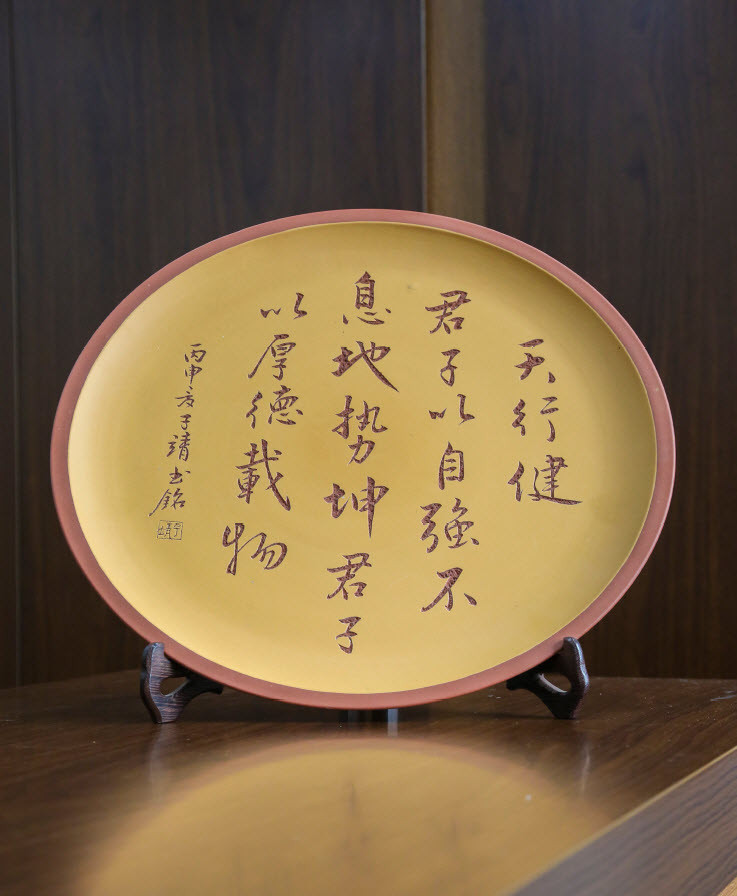 天行健
君子以自強不
息地势坤君子
以厚德載物
丙申夏子靖书銘